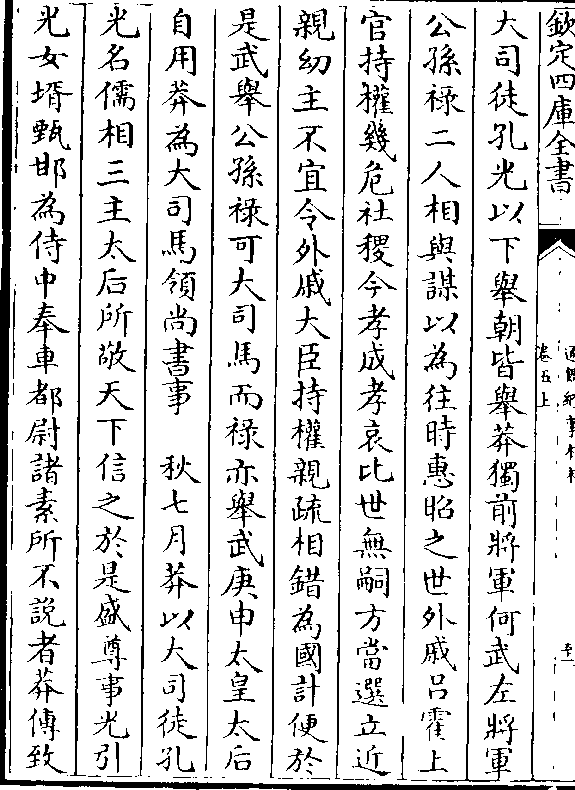 欽定四庫全書
通鑑紀事本末
卷五上
大司徒孔光以下舉朝皆舉莽獨前將軍何武左將軍
公孫祿二人相與謀以為往時惠昭之世外戚吕霍上
官持權幾危社稷今孝成孝哀比世無嗣方當選立近
親幼主不宜令外戚大臣持權親疏相錯為國計便於
是武舉公孫祿可大司馬而祿亦舉武庚申太皇太后
自用莽為大司馬領尚書事　秋七月莽以大司徒孔
光名儒相三主太后所敬天下信之於是盛尊事光引
光女壻甄邯為侍中奉車都尉諸素所不說者莽傅致